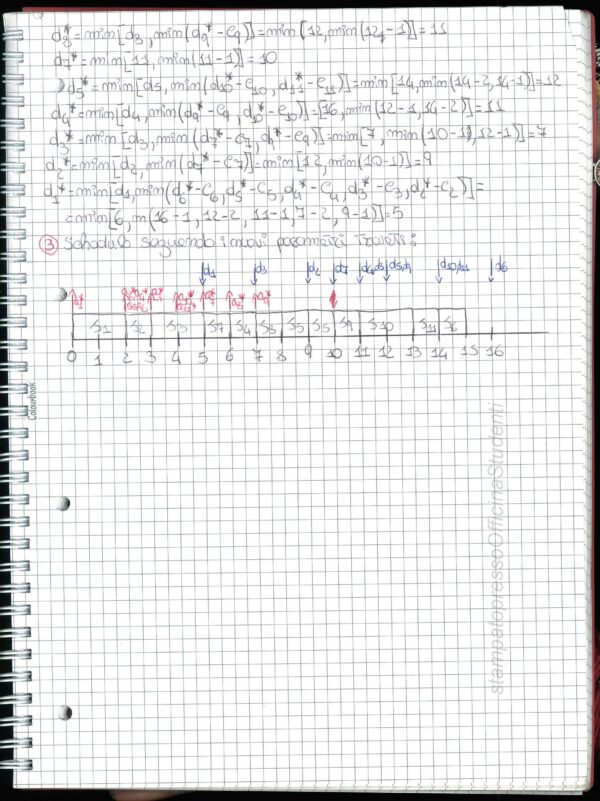 d8*=min[d8,min(d9*-e9)]=min[12,min(12-1)]=11
d7*=min[11,min(11-1)]=10
d5*=min[d5,min(d10*-e10,d11*-e11)]=min[14,min(14-2,14-1)]=12
d4*=min[d4,min(d9*-e9,d10*-e10)]=[16,min(12-1,14-2)]=11
d3*=min[d3,min(d7*-e7,d9*-e9)]=min[7,min(10-1,12-1)]=7
d2*=min[d2,min(d7*-e7)]=min[12,min(10-1)]=9
d1*=min[d1,min(d6*-c6,d5*-c5,d4*-c4,d3*-c3,d2*-c2)]=
=min[6,m(16-1,12-2,11-1,7-2,9-1)]=5
③ Schedulo seguendo i nuovi parametri trovati:
d1 d3 d2 d7 d10,d11 d6
S1 S2 S3 S7 S4 S8 S5 S5 S9 S10 S11 S6
0 1 2 3 4 5 6 7 8 9 10 11 12 13 14 15 16
Colourbook
stampatopressoOfficinaStudenti